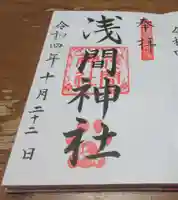 奉拝
浅間神社
令和四年十月二十二日